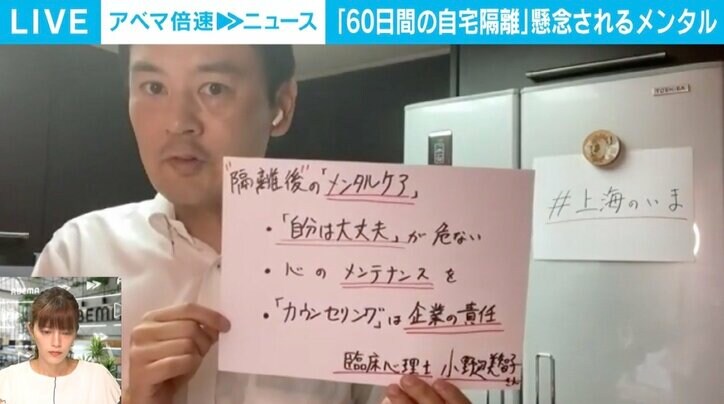 LIVE
アベマ倍速▶▶ニュース
「60日間の自宅隔離」懸念されるメンタル
TOSHIBA
"隔離後"の「メンタルケア」
・「自分は大丈夫」が危ない
・心のメンテナンスを
・「カウンセリング」は企業の責任
臨床心理士
さん
#上海のいま
ABEMA